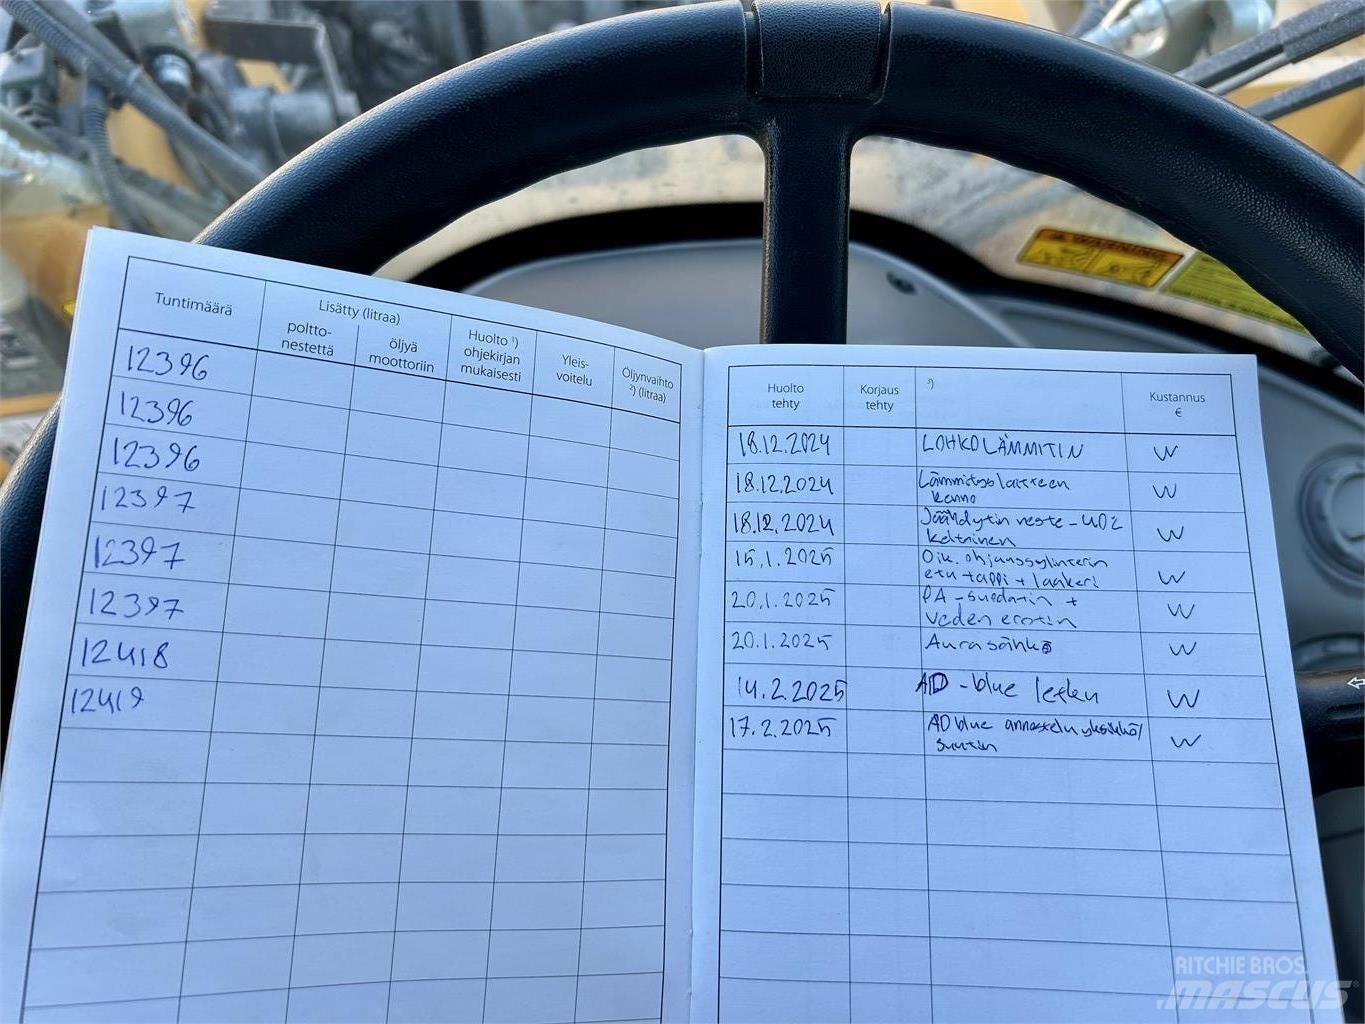 WARNING
Tuntimäärä
Lisätty (litraa)
poltto-
nestettä
öljyä
moottoriin
Huolto ¹)
ohjekirjan
mukaisesti
Yleis-
voitelu
Öljynvaihto
²) (litraa)
12396
12396
12396
12397
12397
12397
12418
12419
Huolto
tehty
Korjaus
tehty
³)
Kustannus
€
18.12.2024 LOHKOLÄMMITIN W
18.12.2024 Lämmityslaitteen W
kenno
18.12.2024 Jäähdytin neste -40 W
keltainen
15.1.2025 Oik. ohjaussylinterin W
etu tappi + laakeri
20.1.2025 PA-suodatin + W
veden erotin
20.1.2025 Aurasähkö W
14.2.2025 AD-blue letku W
17.2.2025 AD blue annosteluyksikkö/ W
suutin
RITCHIE BROS.
MASCUS